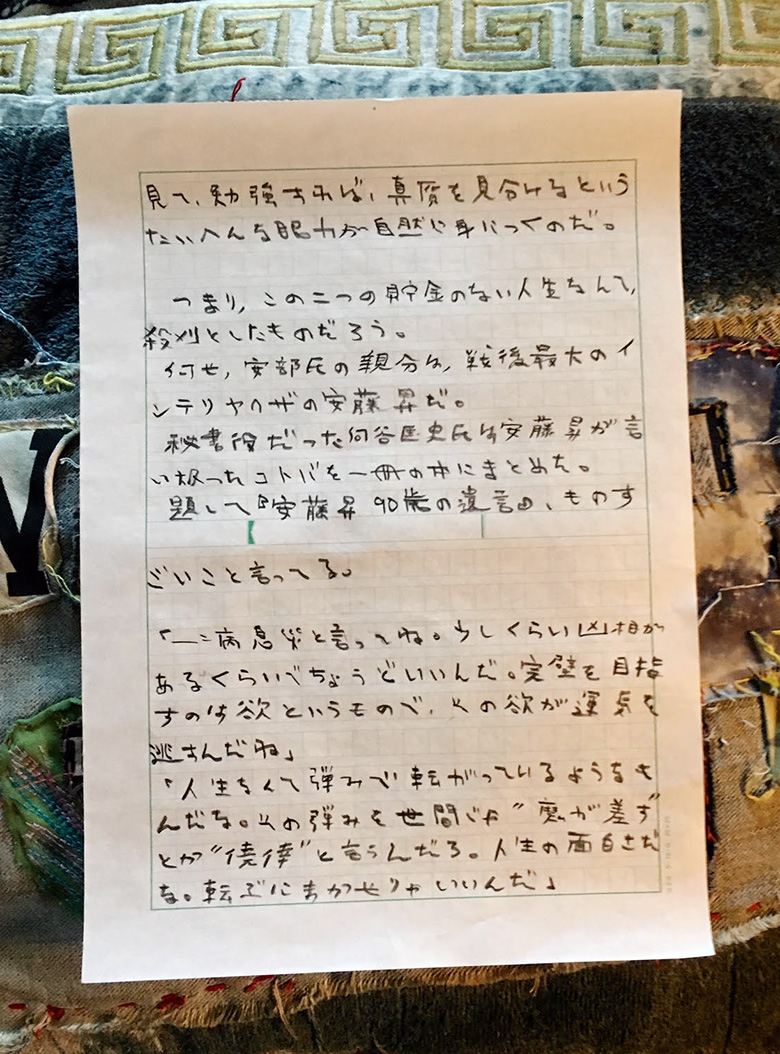 見て、勉強すれば、真贋を見分けるという
たいへんな眼力が自然に身につくのだ。
つまり、この二つの貯金のない人生なんて、
殺刈としたものだろう。
何せ、安部氏の親分は、戦後最大のイ
ンテリヤクザの安藤昇だ。
秘書役だった向谷匡史氏は安藤昇が言
い放ったコトバを一冊の本にまとめた。
題して『安藤昇90歳の遺言』、ものす
ごいこと言ってる。
「一病息災と言ってね。少しくらい凶相が
あるくらいでちょうどいいんだ。完璧を目指
すのは欲というもので、その欲が運気を
逃すんだね」
「人生なんて弾みで転がっているようなも
んだな。その弾みを世間じゃ“魔が差す”
とか“僥倖”と言うんだろ。人生の面白さだ
な。転ぶにまかせりゃいいんだ」